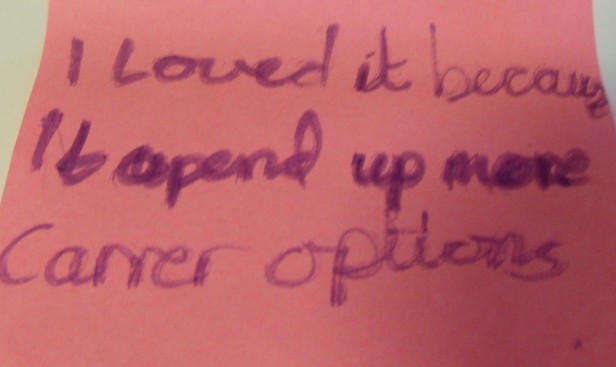 I Loved it because
It opend up more
Carrer options